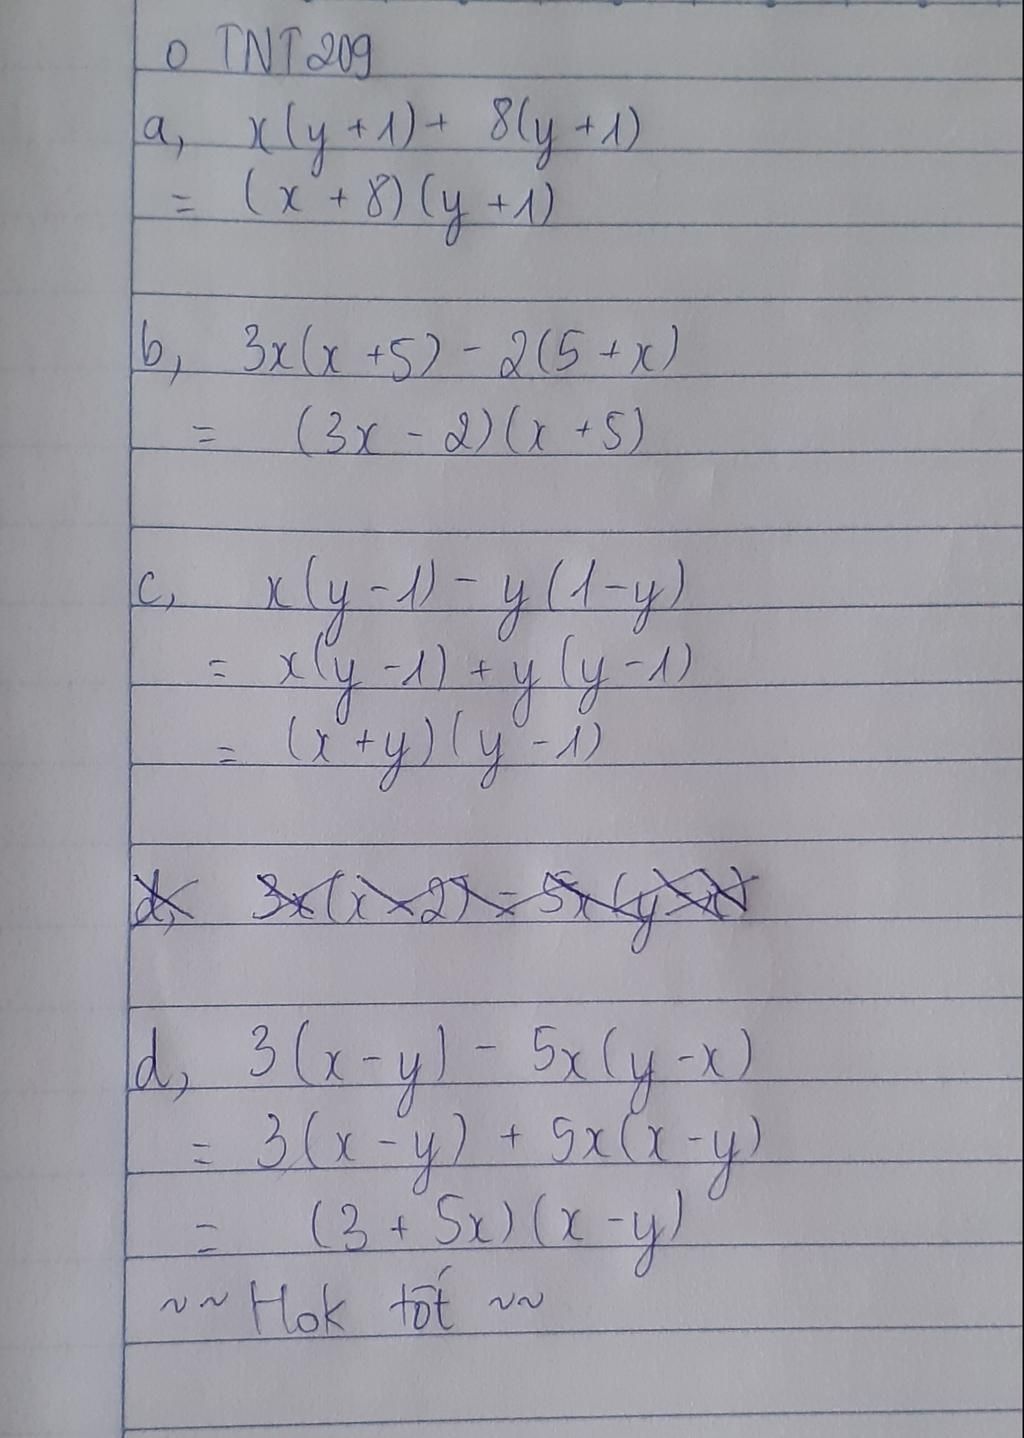 o TNT209
a, x(y+1)+ 8(y+1)
= (x+8)(y+1)
b, 3x(x+5)-2(5+x)
= (3x-2)(x+5)
c, x(y-1)-y(1-y)
= x(y-1)+y(y-1)
= (x+y)(y-1)
d, 3(x-y)-5x(y-x)
= 3(x-y)+5x(x-y)
= (3+5x)(x-y)
~~Hok tốt ~~